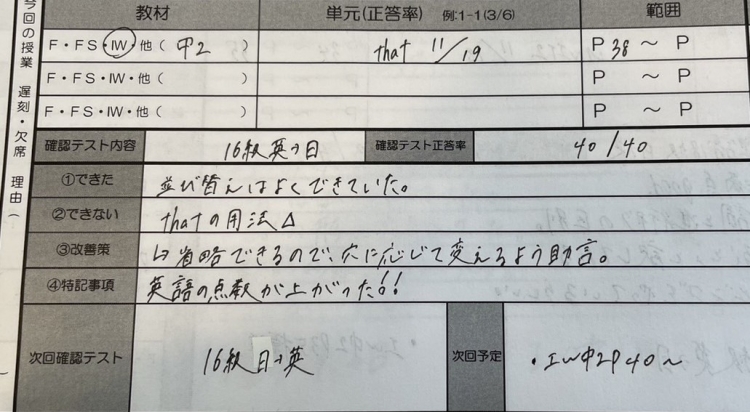 今回の授業 遅刻・欠席 理由(
教材 単元(正答率) 例:1-1(3/6) 範囲
F・FS・IW・他( 中2 ) that 11/19 P38 ~ P
F・FS・IW・他( ) P ~ P
F・FS・IW・他( ) P ~ P
確認テスト内容 16級英→日 確認テスト正答率 40/40
①できた 並び替えはよくできていた。
②できない thatの用法△
③改善策 ↳省略できるので、穴に応じて変えるよう助言。
④特記事項 英語の点数が上がった!!
次回確認テスト 16級 日→英 次回予定 ・IW中2P40~